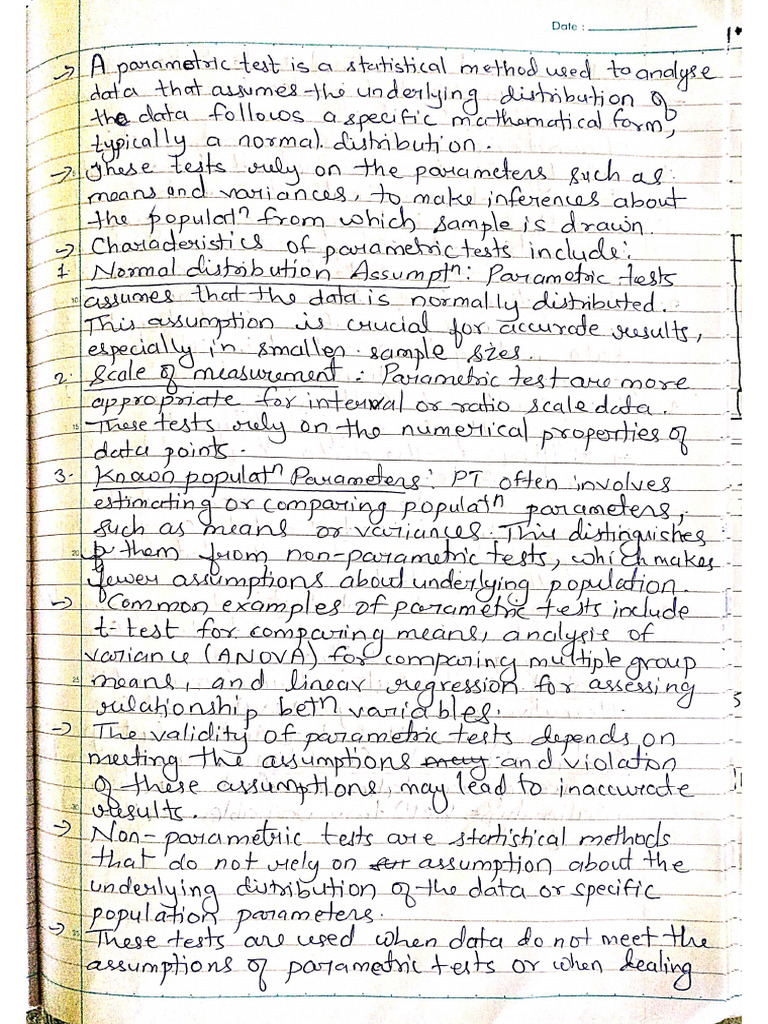 Date :
1*
-> A parametric test is a statistical method used to analyse
data that assumes the underlying distribution of
the data follows a specific mathematical form,
typically a normal distribution.
-> These tests rely on the parameters such as
means and variances, to make inferences about
the populatⁿ from which sample is drawn.
-> Characteristics of parametric tests include:
1. Normal distribution Assumptⁿ: Parametric tests
assumes that the data is normally distributed.
This assumption is crucial for accurate results,
especially in smaller sample sizes.
2. Scale of measurement: Parametric test are more
appropriate for interval or ratio scale data.
These tests rely on the numerical properties of
data points.
3. Known populatⁿ Parameters: PT often involves
estimating or comparing populatⁿ parameters,
such as means or variances. This distinguishes
them from non-parametric tests, which makes
fewer assumptions about underlying population.
-> Common examples of parametric tests include
t-test for comparing means, analysis of
variance (ANOVA) for comparing multiple group
means, and linear regression for assessing
relationship betⁿ variables.
-> The validity of parametric tests depends on
meeting the assumptions and violation
of these assumptions, may lead to inaccurate
results.
-> Non-parametric tests are statistical methods
that do not rely on assumption about the
underlying distribution of the data or specific
population parameters.
-> These tests are used when data do not meet the
assumptions of parametric tests or when dealing